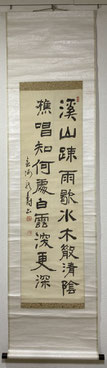 溪山疎雨歇水木散清陰
樵唱知何處白雲深更深